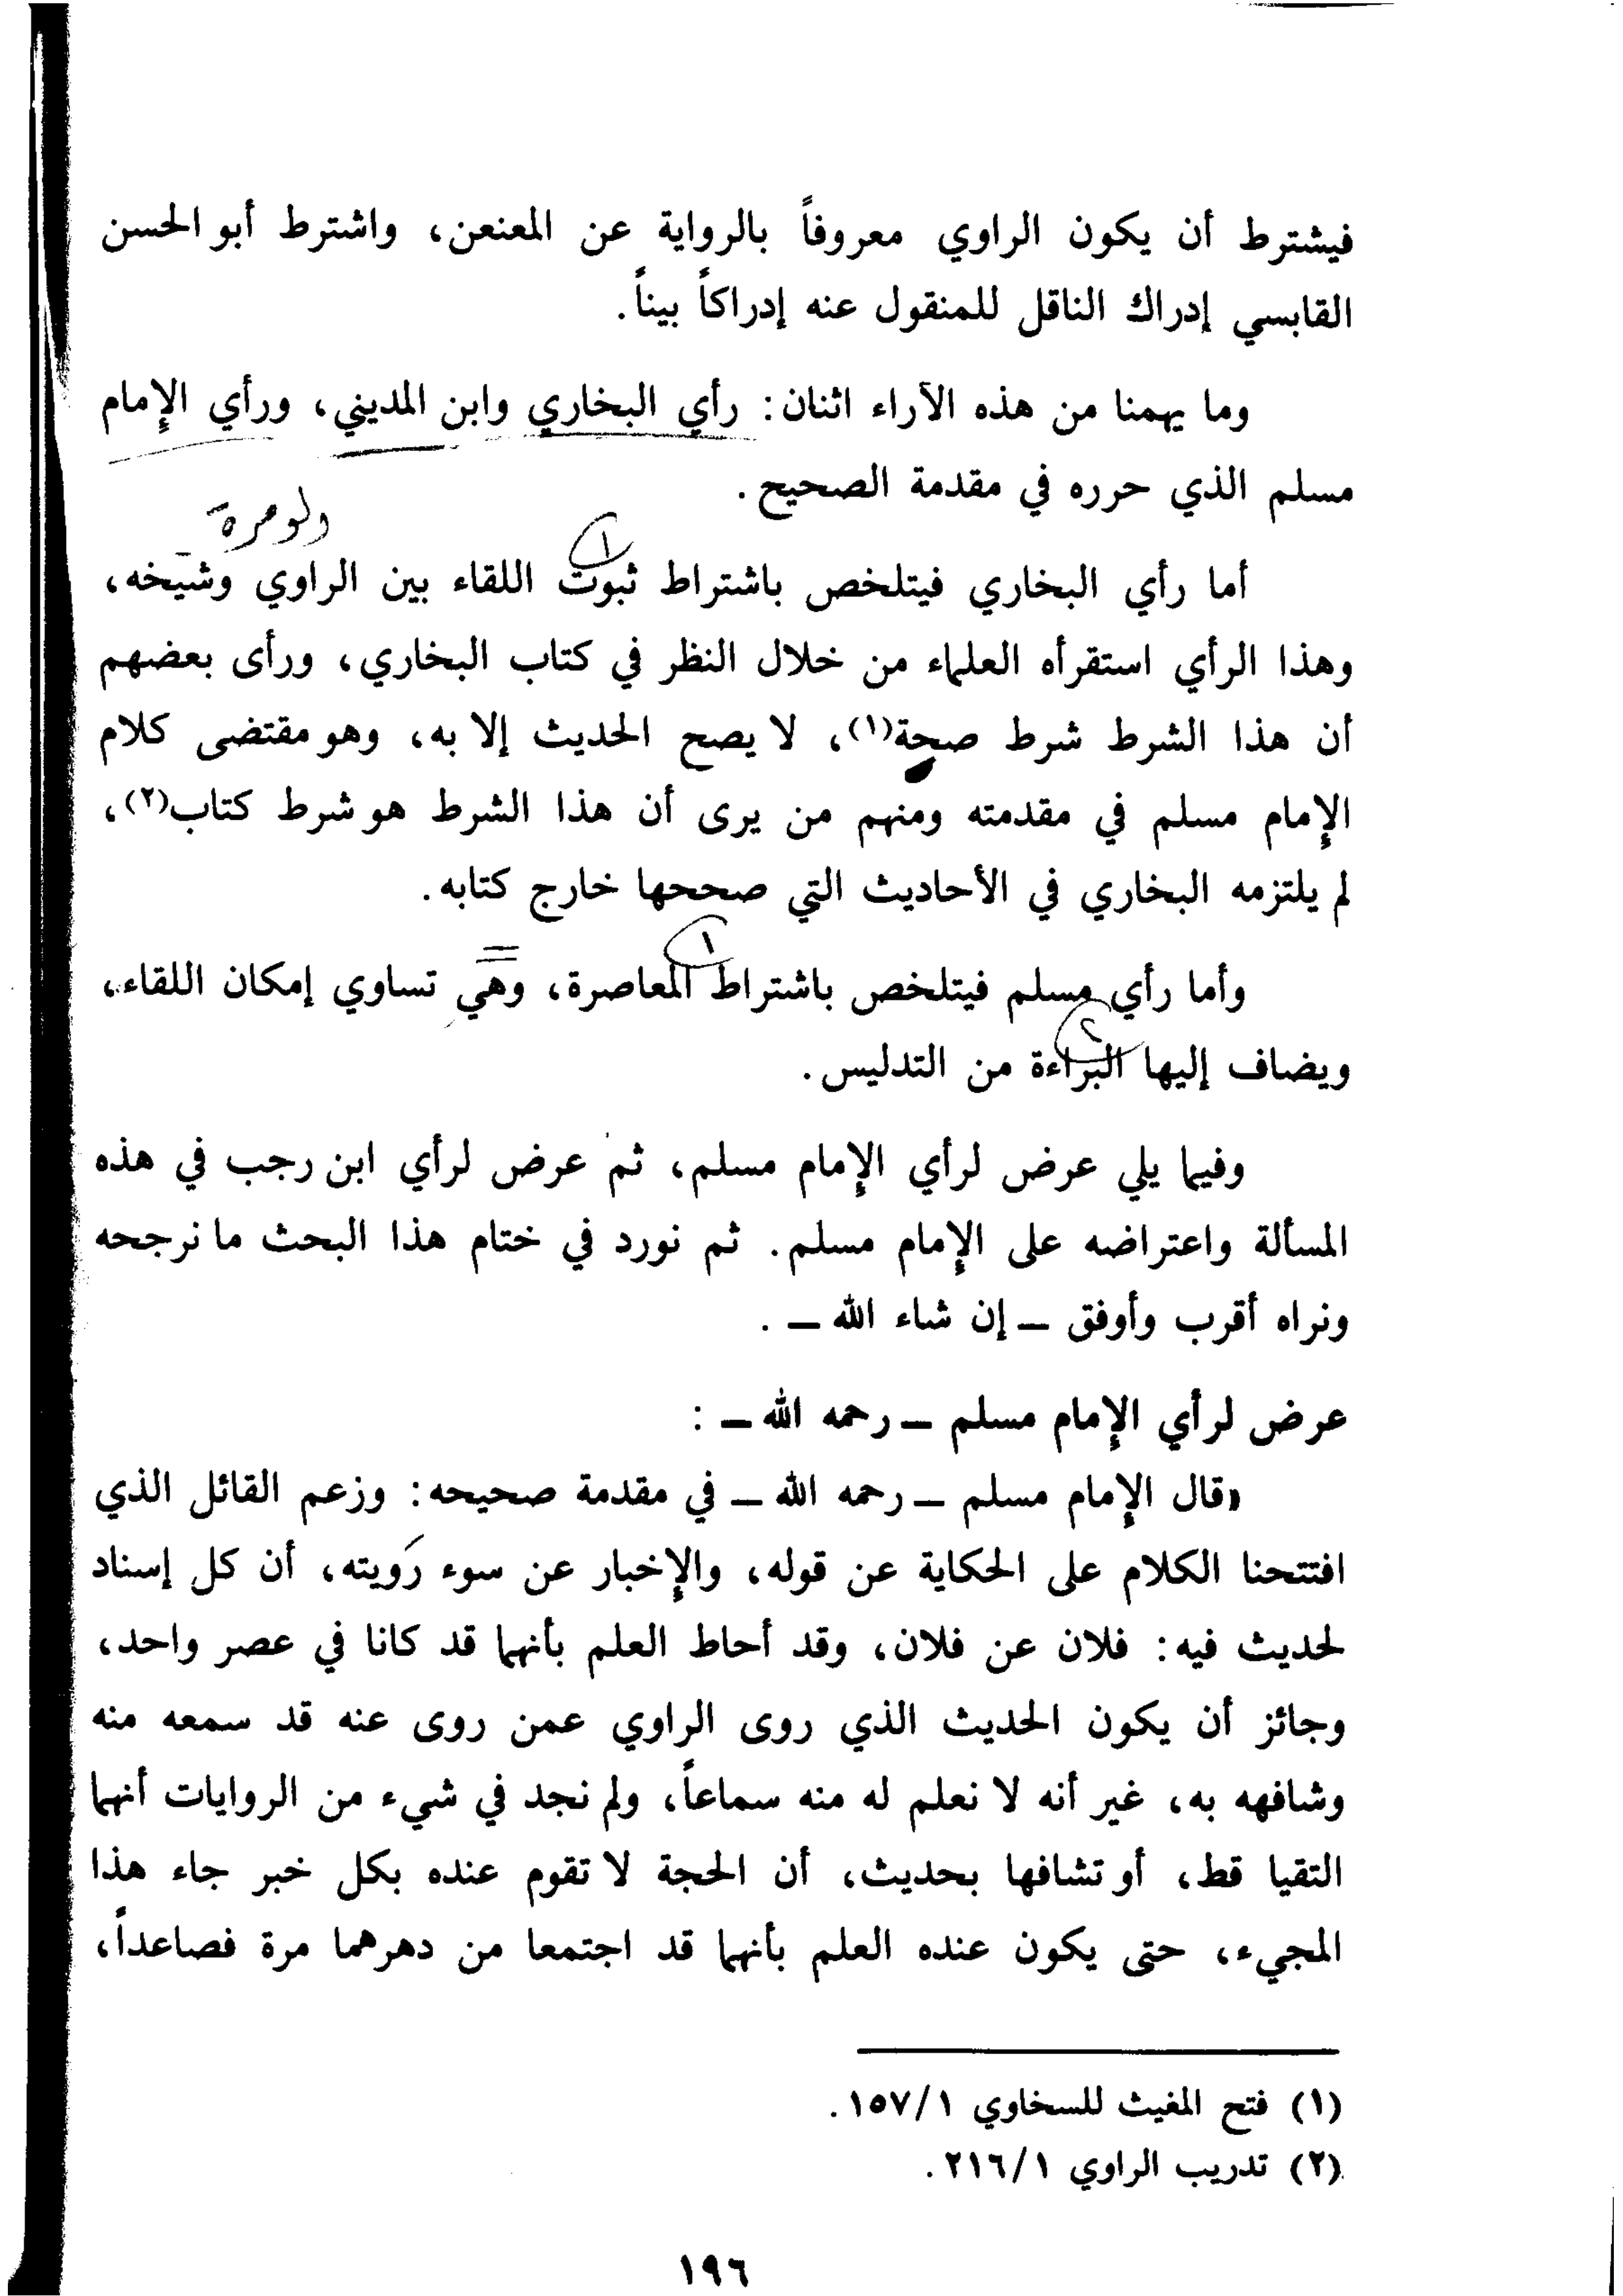 فيشترط أن يكون الراوي معروفاً بالرواية عن المعنعن، واشترط أبو الحسن
القابسي إدراك الناقل للمنقول عنه إدراكاً بيناً.
وما يهمنا من هذه الآراء اثنان: رأي البخاري وابن المديني، ورأي الإمام
مسلم الذي حرره في مقدمة الصحيح.
ولو مرة
١
أما رأي البخاري فيتلخص باشتراط ثبوت اللقاء بين الراوي وشيخه،
وهذا الرأي استقرأه العلماء من خلال النظر في كتاب البخاري، ورأى بعضهم
أن هذا الشرط شرط صحة(١)، لا يصح الحديث إلا به، وهو مقتضى كلام
الإمام مسلم في مقدمته ومنهم من يرى أن هذا الشرط هو شرط كتاب(٢)،
لم يلتزمه البخاري في الأحاديث التي صححها خارج كتابه.
١
وأما رأي مسلم فيتلخص باشتراط المعاصرة، وهي تساوي إمكان اللقاء،
٢
ويضاف إليها البراءة من التدليس.
وفيما يلي عرض لرأي الإمام مسلم، ثم عرض لرأي ابن رجب في هذه
المسألة واعتراضه على الإمام مسلم. ثم نورد في ختام هذا البحث ما نرجحه
ونراه أقرب وأوفق ــ إن شاء الله ــ .
عرض لرأي الإمام مسلم ــ رحمه الله ــ :
«قال الإمام مسلم ــ رحمه الله ــ في مقدمة صحيحه: وزعم القائل الذي
افتتحنا الكلام على الحكاية عن قوله، والإخبار عن سوء رَويته، أن كل إسناد
لحديث فيه: فلان عن فلان، وقد أحاط العلم بأنهما قد كانا في عصر واحد،
وجائز أن يكون الحديث الذي روى الراوي عمن روى عنه قد سمعه منه
وشافهه به، غير أنه لا نعلم له منه سماعاً، ولم نجد في شيء من الروايات أنهما
التقيا قط، أو تشافها بحديث، أن الحجة لا تقوم عنده بكل خبر جاء هذا
المجيء، حتى يكون عنده العلم بأنهما قد اجتمعا من دهرهما مرة فصاعداً،
(١) فتح المغيث للسخاوي ١/١٥٧.
(٢) تدريب الراوي ١/٢١٦.
١٩٦